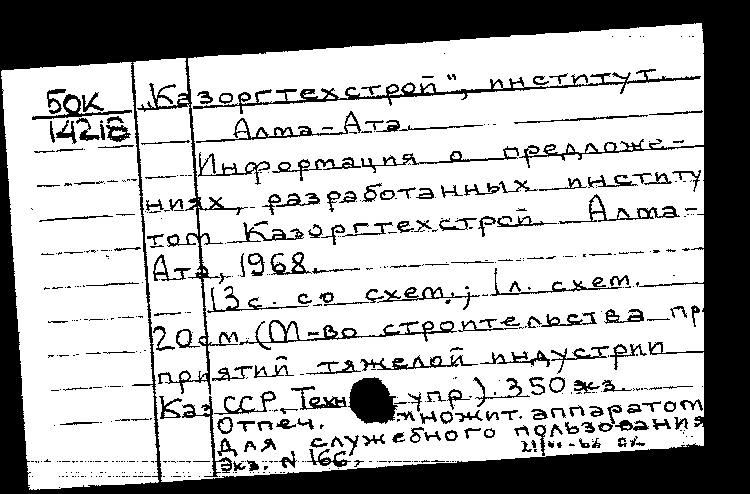 БОК
14218
„Казоргтехстрой", институт.
Алма-Ата.
Информация о предложе-
ниях, разработанных институ
том Казоргтехстрой. Алма-
Ата, 1968.
13 с. со схем.; 1 л. схем.
20 см. (М-во строительства пр
приятий тяжелой индустрии
Каз ССР. Техн упр.). 350 экз.
Отпеч. множит. аппаратом
Для служебного пользования
Экз. N 166.